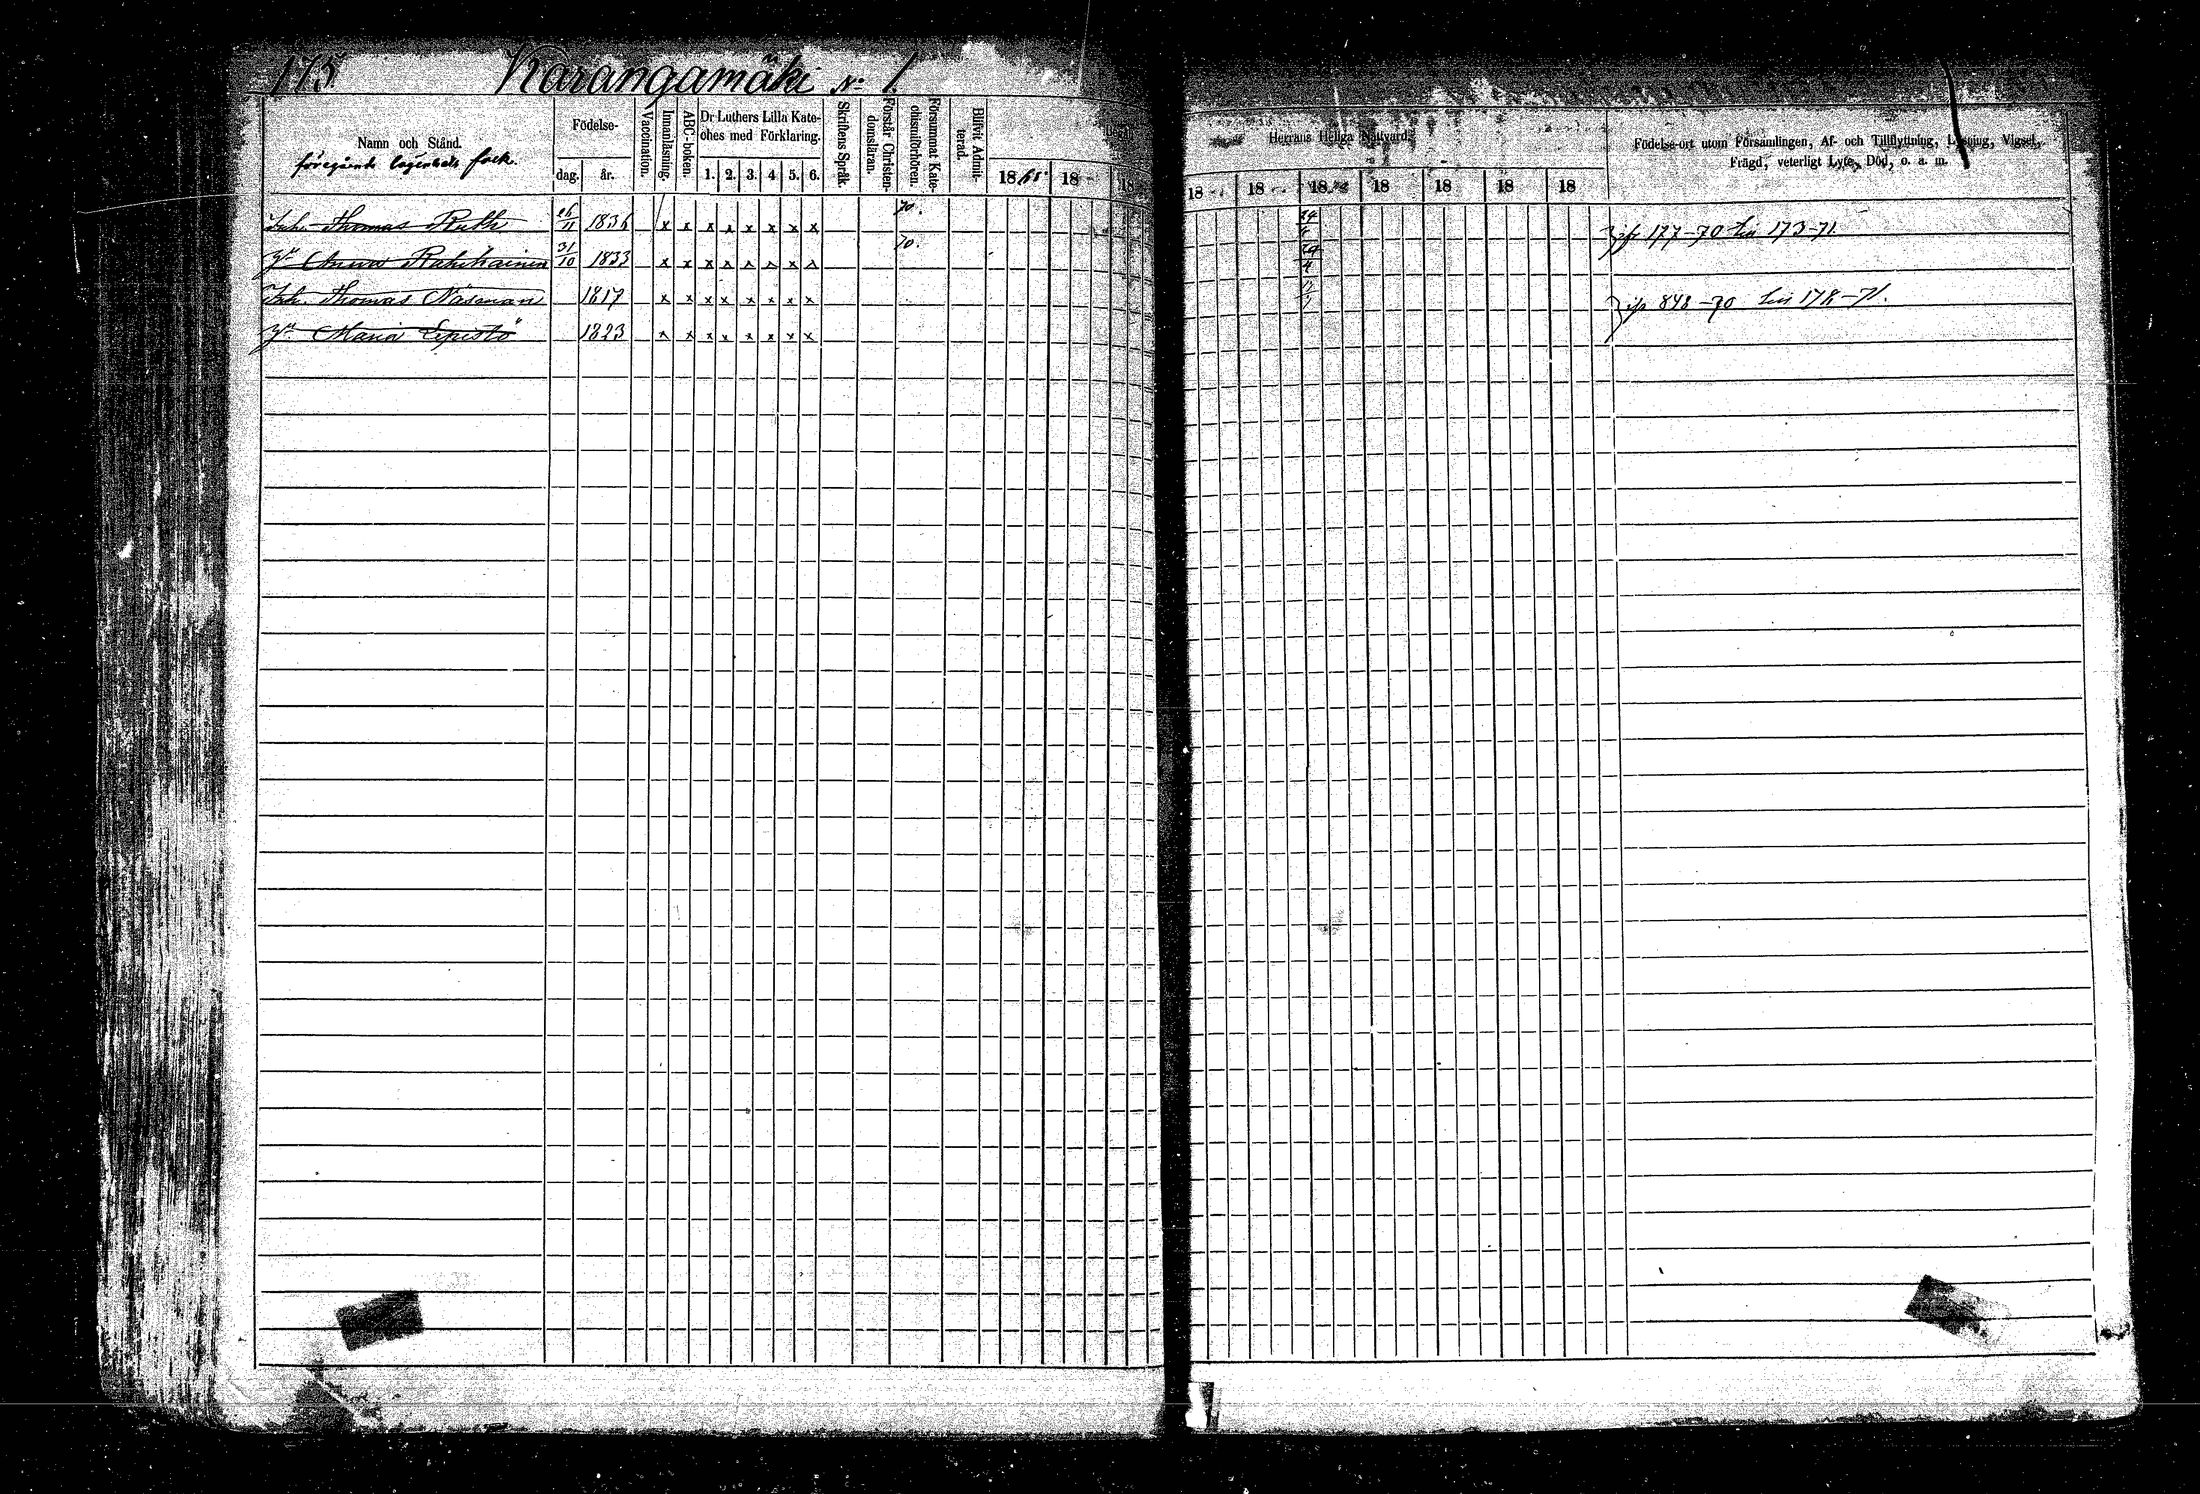 175.
Karangamäki No 1.
Namn och Stånd.
föregående lägenhets folk.
Födelse-
dag. år.
Vaccination.
Innanläsning.
ABC-boken.
Dr Luthers Lilla Kate-
ches med Förklaring.
1. 2. 3. 4 5. 6.
Skriftens Språk.
Förstår Christen-
domsläran.
Försummat Kate-
chismiförhören.
Blifvit Admit-
terad.
18 18 18
Herrans Heliga Nattvard.
18 18 18 18 18 18 18
Födelse-ort utom Församlingen, Af- och Tillflyttning, Lysning, Vigsel,
Frägd, veterligt Lyte, Död, o. a. m.
Inh. Thomas Ruth 26/11 1836 x x x x x x x x 70.
177-70 173-71
Hu Anna 31/10 1833 x x x x x x x x 70. 24/4
Inh. Thomas Näsman 1817 x x x x x x x x
848-70 178-71.
Hu Maria Lepistö 1823 x x x x x x x x